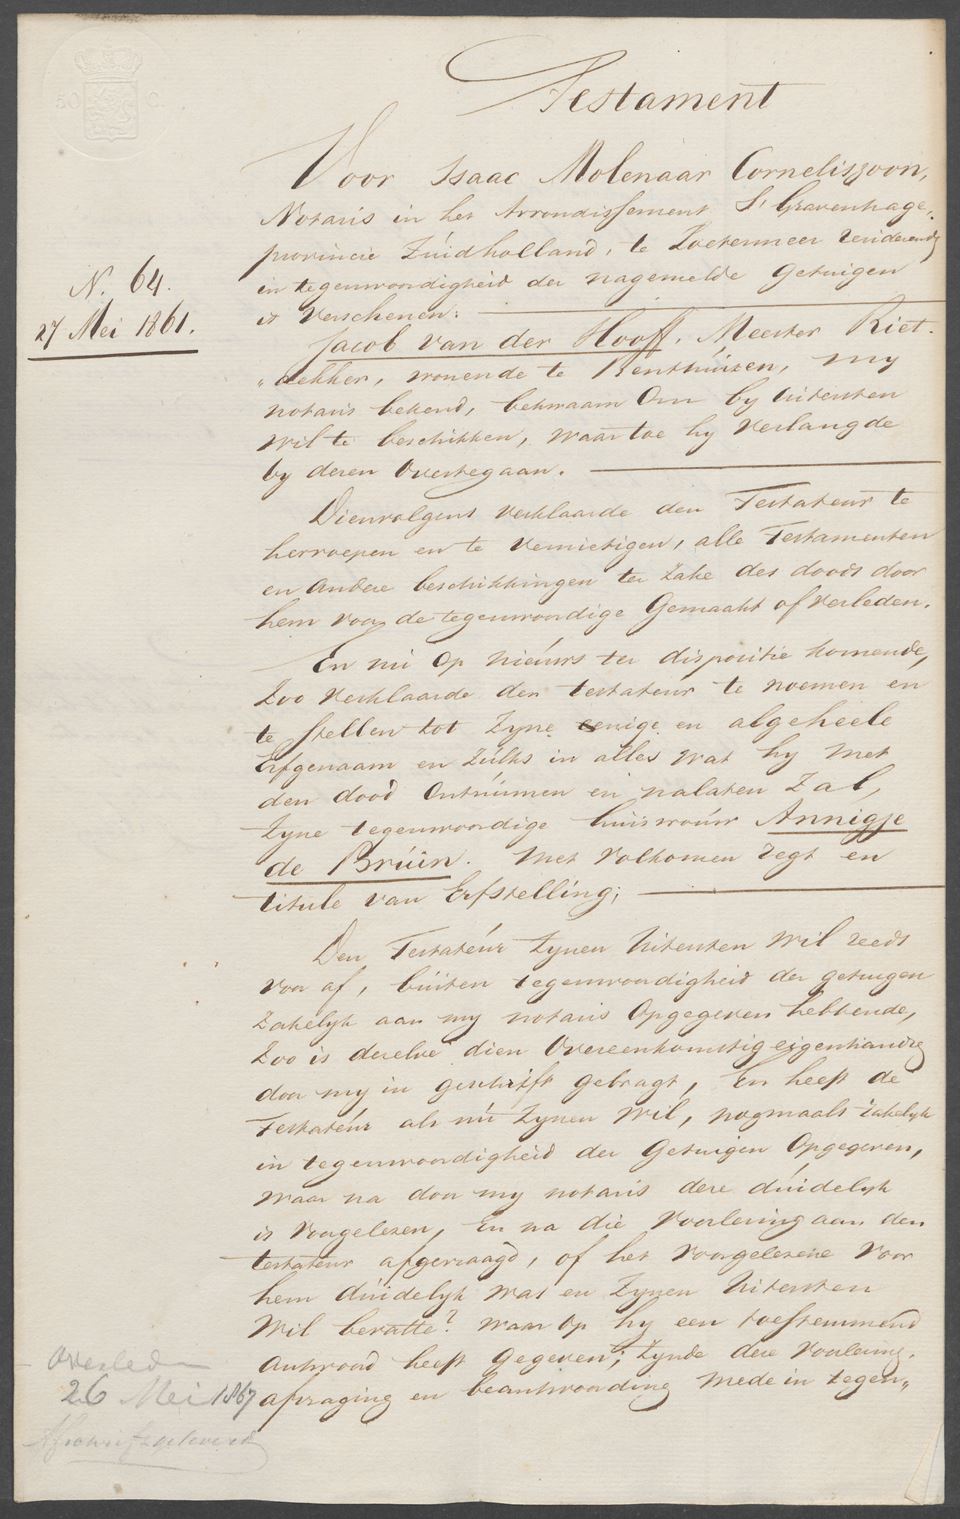 50 C.
Testament
Voor Isaac Molenaar Corneliszoon,
Notaris in het Arrondissement S' Gravenhage,
provincie Zúidholland, te Zoetermeer resideerende
in tegenwoordigheid der nagemelde getuigen
is verschenen:
N. 64.
27 Mei 1861.
Jacob van der Hooff, Meester Riet-
„dekker, wonende te Benthúizen, my
notaris bekend, bekwaam om by uitersten
wil te beschikken, waartoe hy verlangde
by deren overtegaan.
Dienvolgens verklaarde den Testateur te
herroepen en te vernietigen, alle Testamenten
en andere beschikkingen ter zake des doods door
hem voor de tegenwoordige gemaakt of verleden.
En nú op nieúws ter dispositie komende,
Zoo verklaarde den testateur te noemen en
te stellen tot zyne eenige en algeheele
Erfgenaam en zúlks in alles wat hy met
den dood ontrúimen en nalaten zal,
zyne tegenwoordige huisvroúw Annigje
de Brúin. met volkomen regt en
titule van Erfstelling;
Den Testateúr zynen uitersten wil reeds
voor af, búiten tegenwoordigheid der getuigen
zakelyk aan my notaris opgegeven hebbende,
Zoo is dezelve dien overeenkomstig eigenhandig
door my in geschrift gebragt, En heeft de
Testateúr als nú zynen wil, nogmaals zakelyk
in tegenwoordigheid der getuigen opgegeven,
waar na door my notaris deze dúidelyk
is voorgelezen, En na die voorlezing aan den
testateur afgevraagd, of het voorgelezene voor
hem dúidelyk was en zynen uitersten
wil bevatte? waar op hy een toestemmend
antwoord heeft gegeven; zynde deze voorlezing,
afvraging en beantwoording mede in tegen„
Overleden
26 Mei 1867
Afschrift geleverd